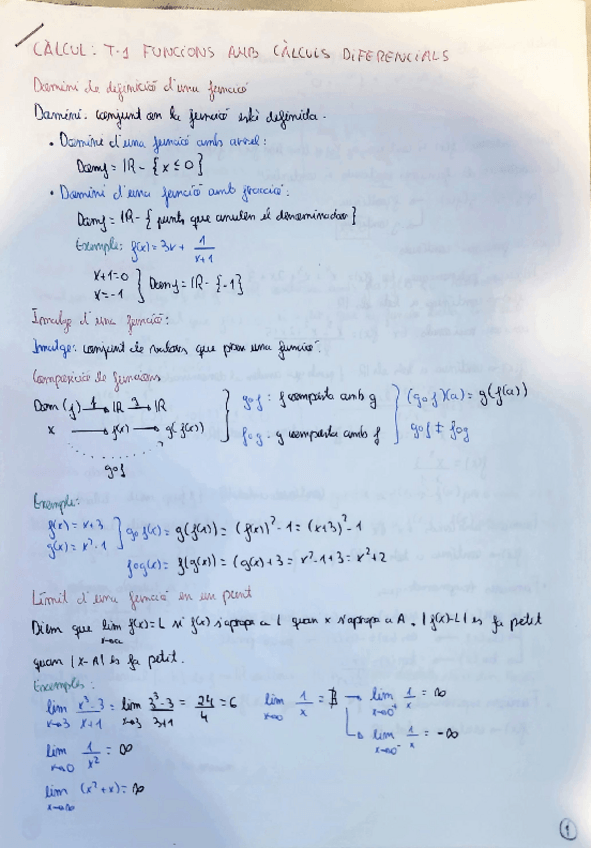 CÀLCUL: T-1 FUNCIONS AMB CÀLCULS DIFERENCIALS
Domini de definició d'una funció
Domini: conjunt on la funció està definida.
• Domini d'una funció amb arrel:
Domf = IR - { x ≤ 0 }
• Domini d'una funció amb fracció:
Domf = IR - { punts que anulen el denominador }
Exemple: f(x) = 3x + 1/(x+1)
x+1=0
x=-1 } Domf = IR - {-1}
Imatge d'una funció:
Imatge: conjunt de valors que pren una funció.
Composició de funcions
Dom (f) → IR → IR } gof : f composta amb g } (gof)(a) = g(f(a))
x → f(x) → g(f(x)) fog : g composta amb f gof ≠ fog
gof
Exemple:
f(x) = x+3
g(x) = x²-1 } gof(x) = g(f(x)) = (f(x))² - 1 = (x+3)² - 1
fog(x) = f(g(x)) = (g(x) + 3 = x²-1+3 = x²+2
Límit d'una funció en un punt
Diem que lim x→a f(x) = L si f(x) s'apropa a L quan x s'apropa a A. |f(x)-L| es fa petit
quan |x-A| es fa petit.
Exemples:
lim x→3 (x³-3)/(x+1) = lim x→3 (3³-3)/(3+1) = 24/4 = 6 lim x→0 1/x = ∄ → lim x→0⁺ 1/x = ∞
↳ lim x→0⁻ 1/x = -∞
lim x→0 1/x² = ∞
lim x→∞ (x²+x) = ∞
1